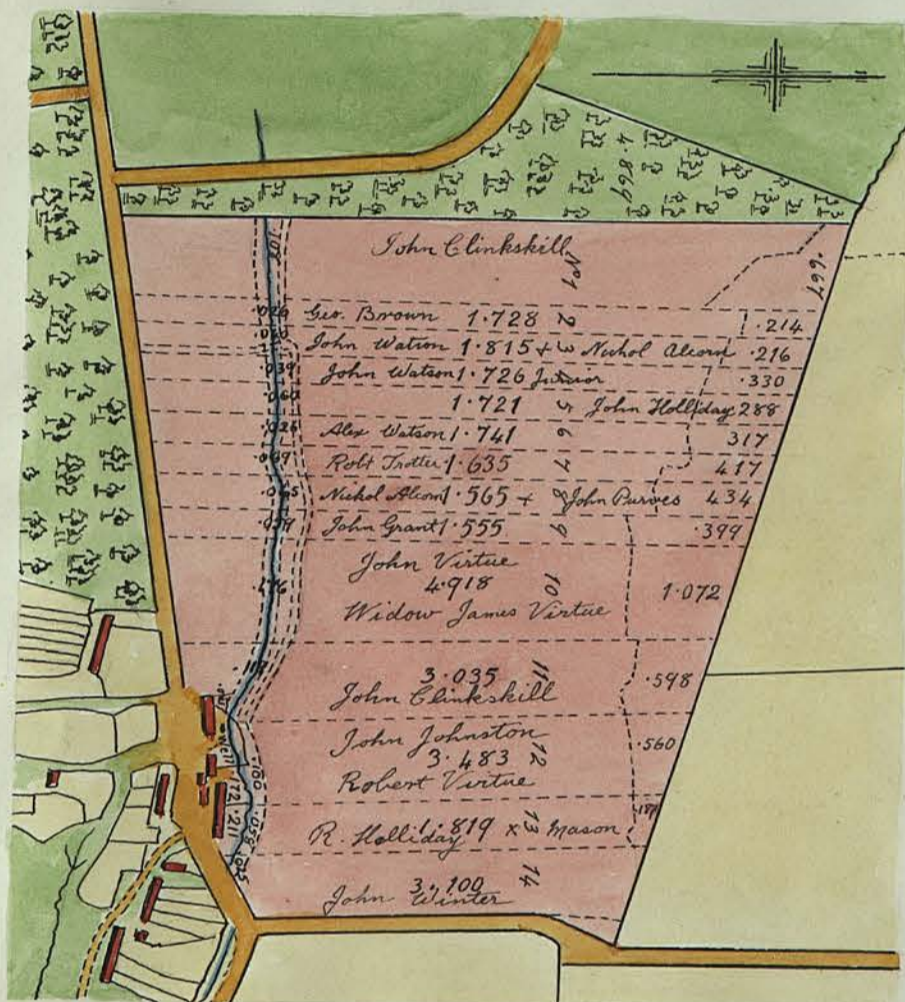 4.869
John Clinkskill No 1 .667
.109
.026 Geo. Brown 1.728 2 .214
John Watson 1.815 + 3 Nichol Alcorn .216
.039 John Watson 1.726 Junior .330
.060 1.721 5 John Holliday 288
.026 Alex Watson 1.741 6 317
.069 Robt Trotter 1.635 7 417
.065 Nichol Alcorn 1.565 + 8 John Purves 434
John Grant 1.555 9 .399
John Virtue
.176 4.918 10 1.072
Widow James Virtue
3.035 11 .598
John Clinkskill
John Johnston
3.483 12 .560
Robert Virtue
.180
.211
.058
R. Holliday 1.819 x 13 Mason
3.100 14
John Winter